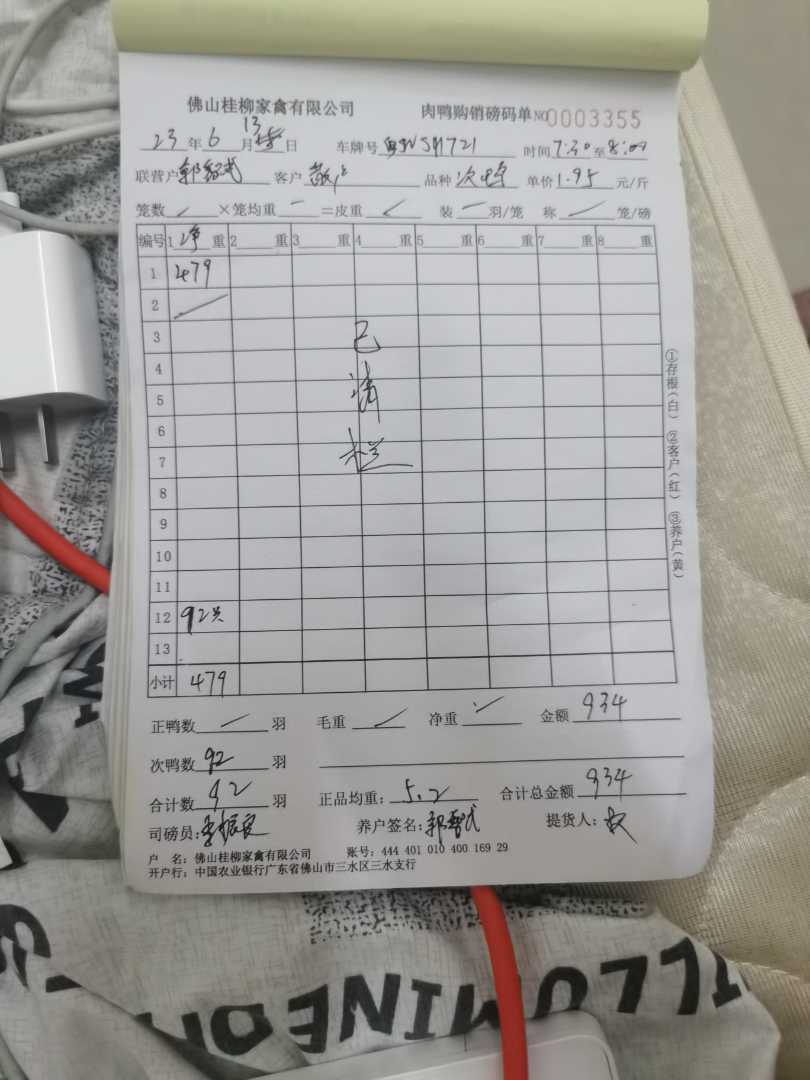 佛山桂柳家禽有限公司 肉鸭购销磅码单 NO 0003355
23 年 6 月 13 日 车牌号 时间 7:30 至 8:00
联营户 客户 散户 品种 次鸭 单价 1.95 元/斤
笼数 ×笼均重 — =皮重 装 — 羽/笼 称 笼/磅
编号 1 净 重 2 重 3 重 4 重 5 重 6 重 7 重 8 重
1 479
2
3 已
4
5 清
6
7 栏
8
9
10
11
12 92只
13
小计 479
正鸭数 羽 毛重 净重 金额 934
次鸭数 92 羽
合计数 92 羽 正品均重: 5.2 合计总金额 934
司磅员: 养户签名: 提货人:
户 名: 佛山桂柳家禽有限公司 账号: 444 401 010 400 169 29
开户行: 中国农业银行广东省佛山市三水区三水支行
①存根(白) ②客户(红) ③养户(黄)